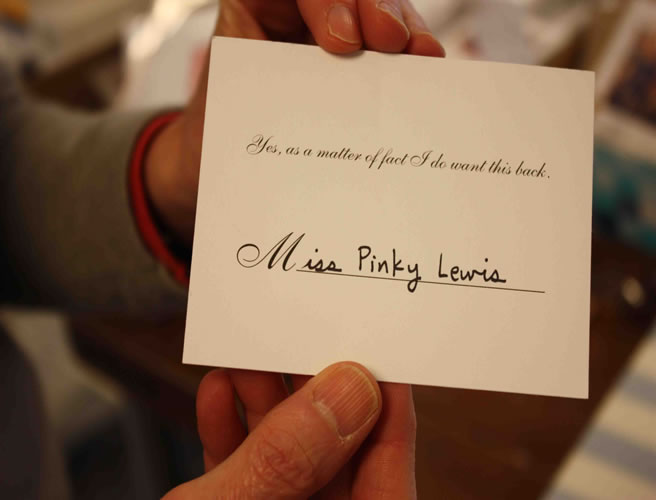 Yes, as a matter of fact I do want this back.
Miss Pinky Lewis